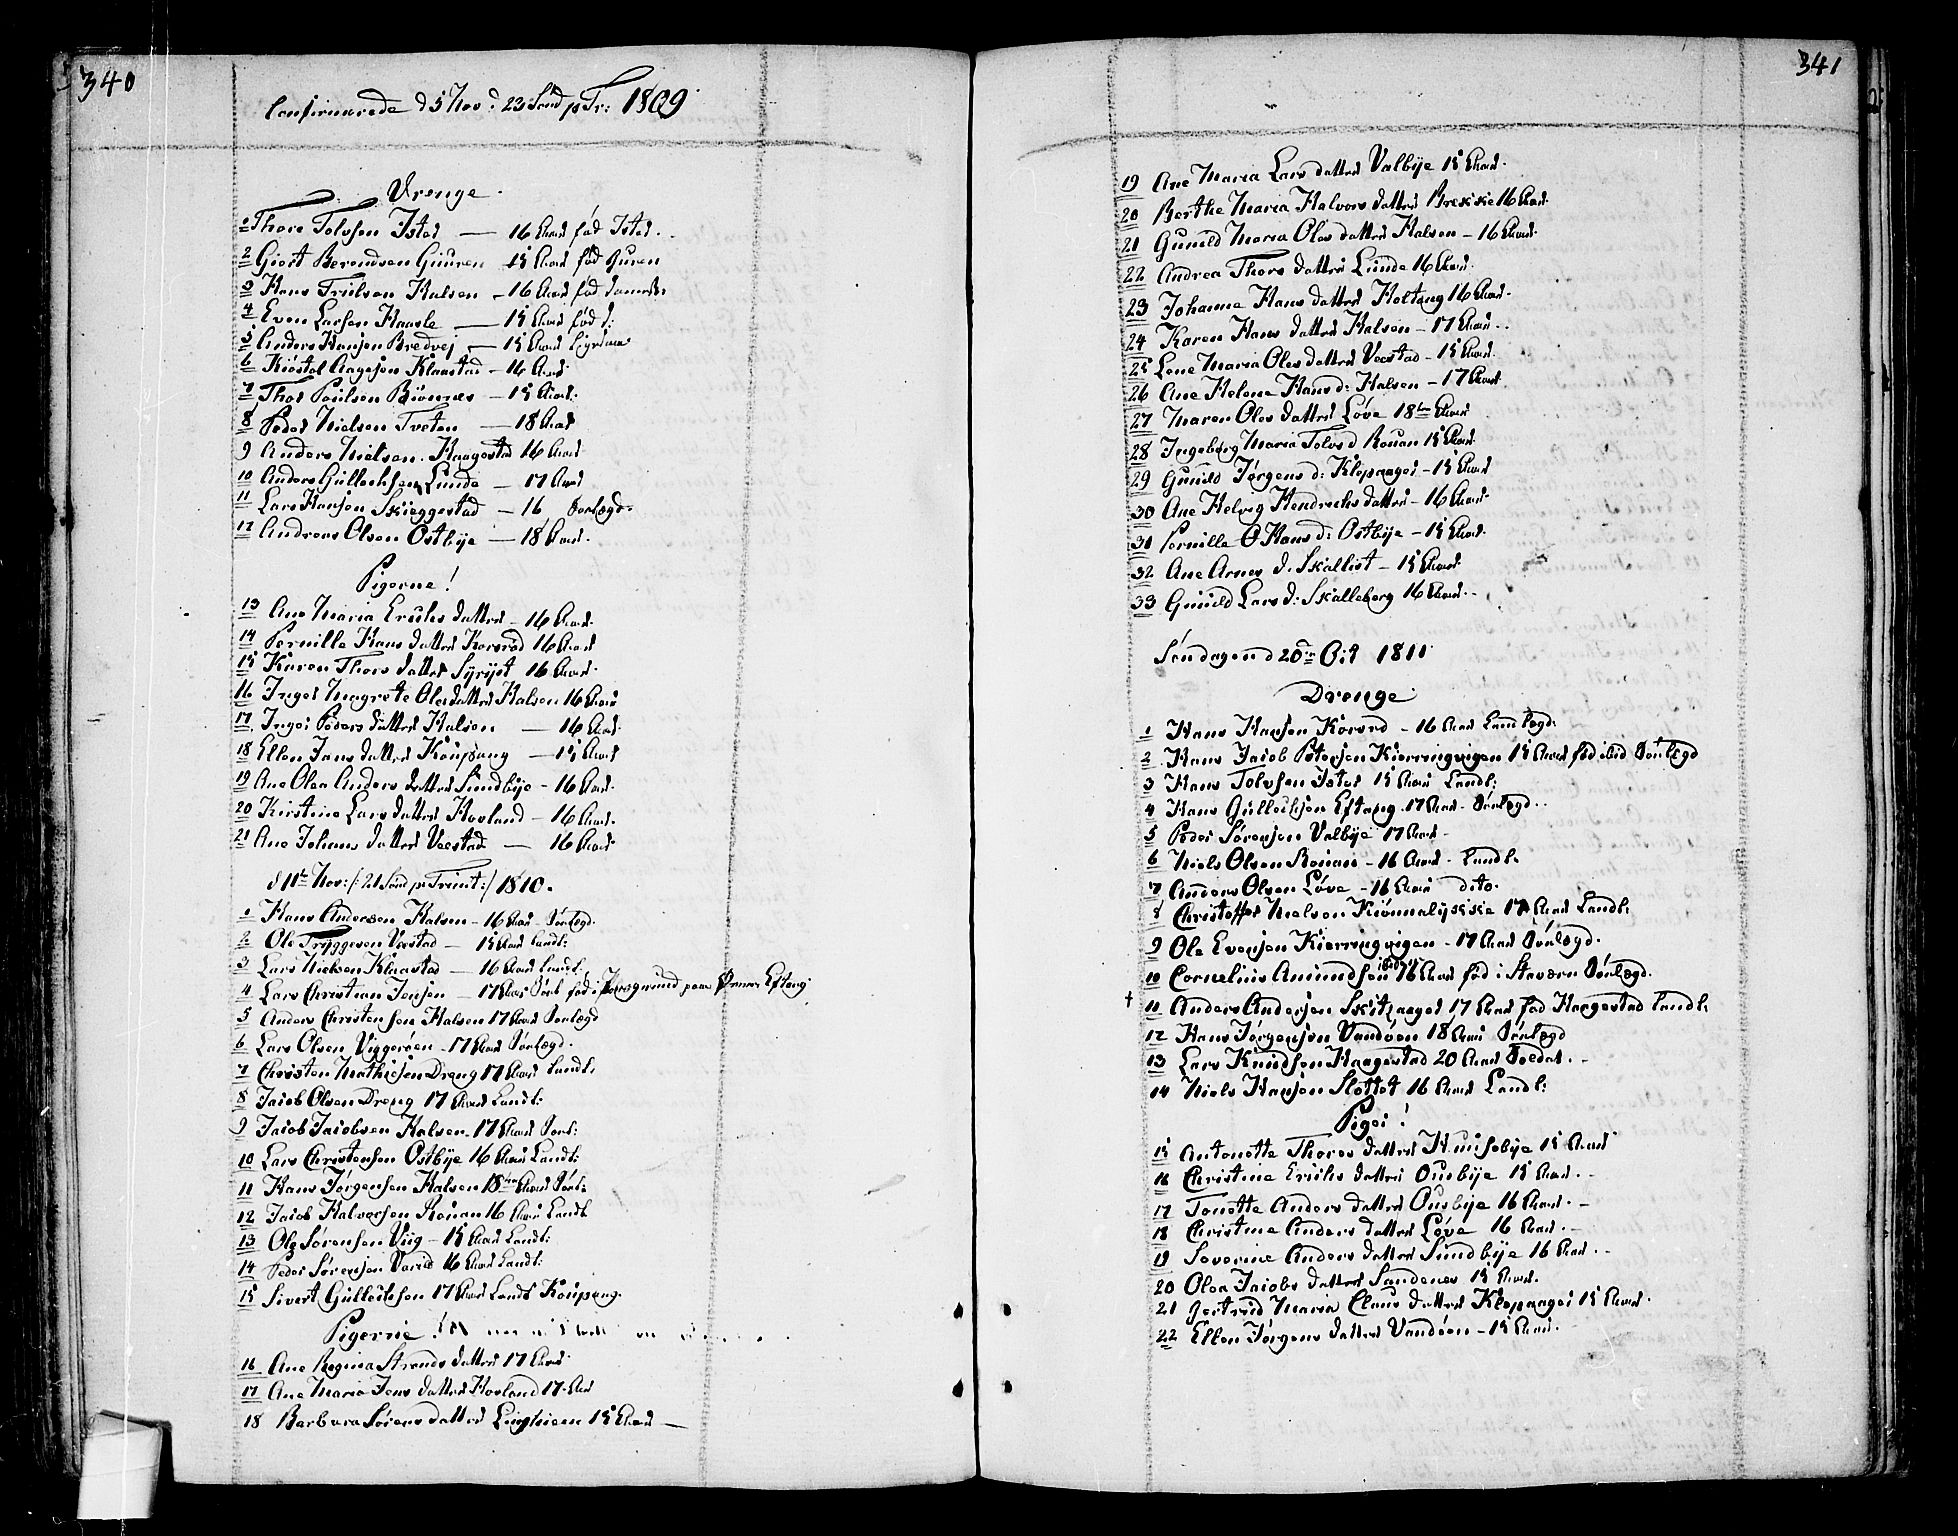 340
Confirmerede d 5 Nov: 23 Sønd p Tr: 1809
Drenge
1 Thore Tolvsen Istad — 16 Aar fød Istad
2 Giert Berendsen Guuren 15 Aar fød Guren
3 Hans Trulsen Halsen 16 Aar fød
4 Even Larsen Haasle — 15 Aar fød
5 Anders Hansen Bredvej — 15 Aar
6 Kiøstol Aagesen Klaastad 16 Aar
7 Thor Poulsen Biønnes — 15 Aar
8 Peder Nielsen Tveten — 18 Aar
9 Anders Nielsen Haagestad 16 Aar
10 Anders Gullichsen Lunde — 17 Aar
11 Lars Hansen Skieggestad — 16 Sørlægd
12 Andreas Olsen Ostbye — 18 Aar
Pigerne!
13 Ane Maria Erichs datter 16 Aar
14 Pernille Hans datter Korsrød 16 Aar
15 Karen Thors datter Syrist 16 Aar
16 Inger Magrete Oles datter Halsen 16 Aar
17 Inger Peders datter Halsen — 16 Aar
18 Ellen Jans datter Koupang — 15 Aar
19 Ane Olea Anders datter Sundbye 16 Aar
20 Kirstine Lars datter Hovland 16 Aar
21 Ane Johans datter Veestad — 16 Aar
d 11te Nov: /: 21 Sønd p Trinit :/ 1810.
1 Hans Andersen Halsen 16 Aar Sørlægd
2 Ole Tryggesen Veestad — 15 Aar Landl:
3 Lars Nielsen Klaastad — 16 Aar Landl:
4 Lars Christian Jensen — 17 Aar Sørl fød i Porsgrund paa Ørnes Eftang
5 Anders Christensen Halsen 17 Aar Sørlægd
6 Lars Olsen Viggerøen 17 Aar Sørlægd
7 Christen Mathisen Dreng 17 Aar Landl:
8 Jacob Olsen Dreng 17 Aar Landl:
9 Jacob Jacobsen Halsen 17 Aar Sørl:
10 Lars Christensen Ostbye 16 Aar Landl:
11 Hans Jørgensen Halsen 18 Aar Sørl:
12 Jacob Halvorsen Rouan 16 Aar Landl
13 Ole Sørensen Viig 15 Aar Landl:
14 Peder Sørensen Varild 16 Aar Landl:
15 Sivert Gullichsen 17 Aar Landl Koupang
Pigerne!
16 Ane Regina Strands datter 17 Aar
17 Ane Maria Jens datter Hovland 17 Aar
18 Barbara Sørens datter 15 Aar
341
19 Ane Maria Lars datter Valbye 15 Aar
20 Berthe Maria Halvors datter Brekke 16 Aar
21 Gunild Maria Oles datter Halsen 16 Aar
22 Andrea Thors datter Lunde 16 Aar
23 Johanne Hans datter Holtang 16 Aar
24 Karen Hans datter Halsen 17 Aar
25 Lene Maria Oles datter Veestad 15 Aar
26 Ane Helene Hans d: Halsen 17 Aar
27 Maren Oles datter Løve 18 Aar
28 Ingeborg Maria Tolvs d Rouan 15 Aar
29 Gunild Jørgens d: Klepaager 15 Aar
30 Ane Helvig Hendrichs datter 16 Aar
31 Pernille Hans d: Ostbye 15 Aar
32 Ane Arnes d. Skallist 15 Aar
33 Gunild Lars d: Skalleberg 16 Aar
Søndagen d 20de Oct 1811
Drenge
1 Hans Hansen Korsrd 16 Aar Landlægd
2 Hans Jacob Petersen Kierringvigen 15 Aar fød ibid Sørlægd
3 Hans Tolvsen Istad 15 Aar Landl:
4 Hans Gullichsen Eftang 17 Aar Sørlægd
5 Peder Sørensen Valbye 17 Aar
6 Niels Olsen Rouan 16 Aar Landl
7 Anders Olsen Løve 16 Aar dito
8 Christoffer Nielsen 17 Aar Landl:
9 Ole Evensen Kierringvigen 17 Aar Sørlægd
10 Cornelius Amundsen 16 Aar fød i Stavern Sørlægd
11 Anders Andersen Skitsager 17 Aar fød Haagestad Landl:
12 Hans Jørgensen Vandøen 18 Aar Sørlægd
13 Lars Knudsen Haagestad 20 Aar Soldat
14 Niels Hansen Slottet 16 Aar Landl:
Piger!
15 Antonette Thores datter Huusebye 15 Aar
16 Christine Erichs datter Ousbye 15 Aar
17 Tonette Anders datter Ousbye 16 Aar
18 Christine Anders datter Løve 16 Aar
19 Severine Anders datter Sundbye 16 Aar
20 Olea Jacobs datter Sandenes 15 Aar
21 Gertrud Maria Claus datter Klepaager 15 Aar
22 Ellen Jørgens datter Vandøen 15 Aar